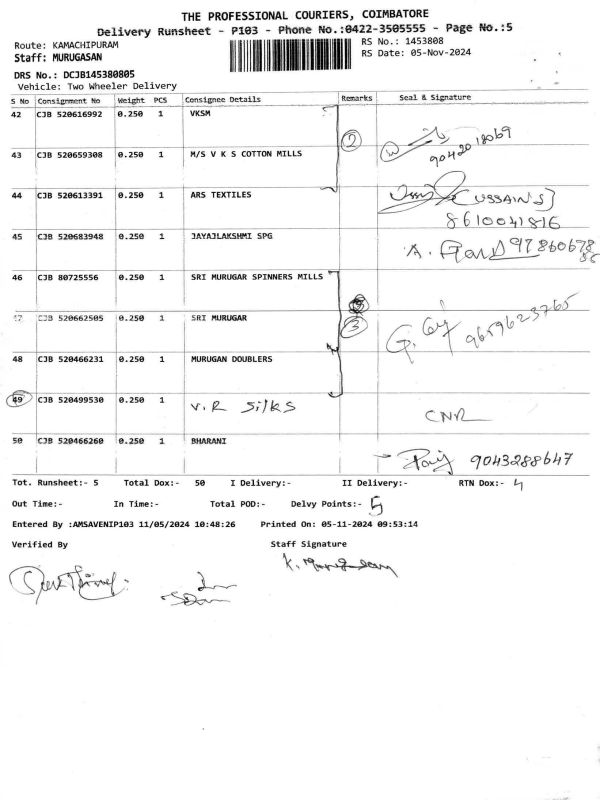 THE PROFESSIONAL COURIERS, COIMBATORE
Delivery Runsheet - P103 - Phone No.:0422-3505555 - Page No.:5
Route: KAMACHIPURAM
RS No.: 1453808
Staff: MURUGASAN
RS Date: 05-Nov-2024
DRS No.: DCJB145380805
Vehicle: Two Wheeler Delivery
S No Consignment No Weight PCS Consignee Details Remarks Seal & Signature
42 CJB 520616992 0.250 1 VKSM
2 9042018069
43 CJB 520659308 0.250 1 M/S V K S COTTON MILLS
44 CJB 520613391 0.250 1 ARS TEXTILES
8610041816
45 CJB 520683948 0.250 1 JAYAJLAKSHMI SPG A.
46 CJB 80725556 0.250 1 SRI MURUGAR SPINNERS MILLS
47 CJB 520662505 0.250 1 SRI MURUGAR 3 9659623765
48 CJB 520466231 0.250 1 MURUGAN DOUBLERS
49 CJB 520499530 0.250 1 V.R Silks CNR
50 CJB 520466260 0.250 1 BHARANI 9043288647
Tot. Runsheet:- 5 Total Dox:- 50 I Delivery:- II Delivery:- RTN Dox:- 4
Out Time:- In Time:- Total POD:- Delvy Points:- 5
Entered By :AMSAVENIP103 11/05/2024 10:48:26 Printed On: 05-11-2024 09:53:14
Verified By Staff Signature